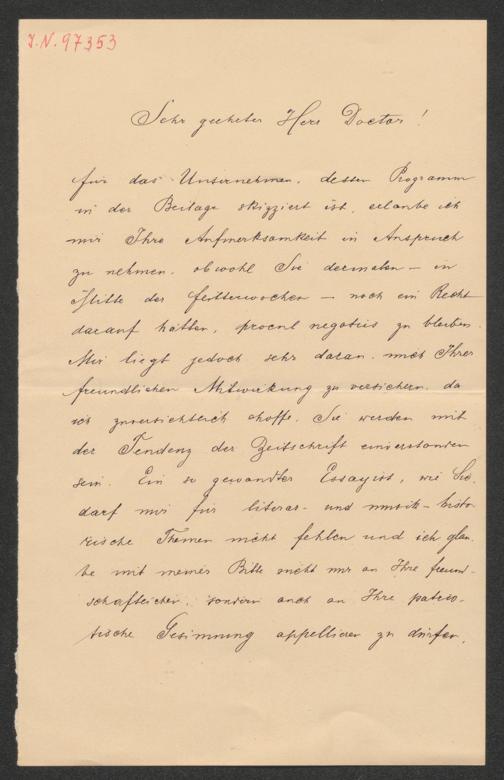 J.N. 97353
Sehr geehrter Herr Doctor!
für das Unternehmen, dessen Programm
in der Beilage skizziert ist, erlaube ich
mir Ihre Aufmerksamkeit in Anspruch
zu nehmen, obwohl Sie dermalen – in
Mitte der Flitterwochen – noch ein Recht
darauf hätten, procul negotiis zu bleiben.
Mir liegt jedoch sehr daran, mich Ihrer
freundlichen Mitwirkung zu versichern, da
ich zuversichtlich hoffe, Sie werden mit
der Tendenz der Zeitschrift einverstanden
sein. Ein so gewandter Essayist, wie Sie,
darf mir für literar- und musik-histo-
rische Themen nicht fehlen und ich glau-
be mit meiner Bitte nicht nur an Ihre freund-
schaftlichen, sondern auch an Ihre patrio-
tische Gesinnung appellieren zu dürfen.